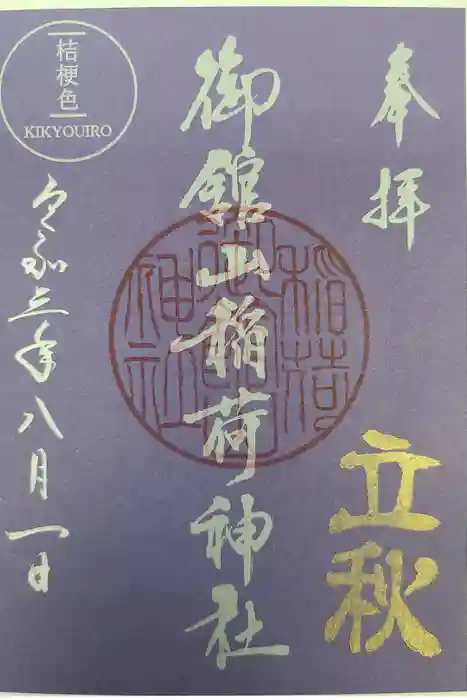 奉拝
立秋
御舘山稲荷神社
桔梗色
KIKYOUIRO
令和三年八月一日